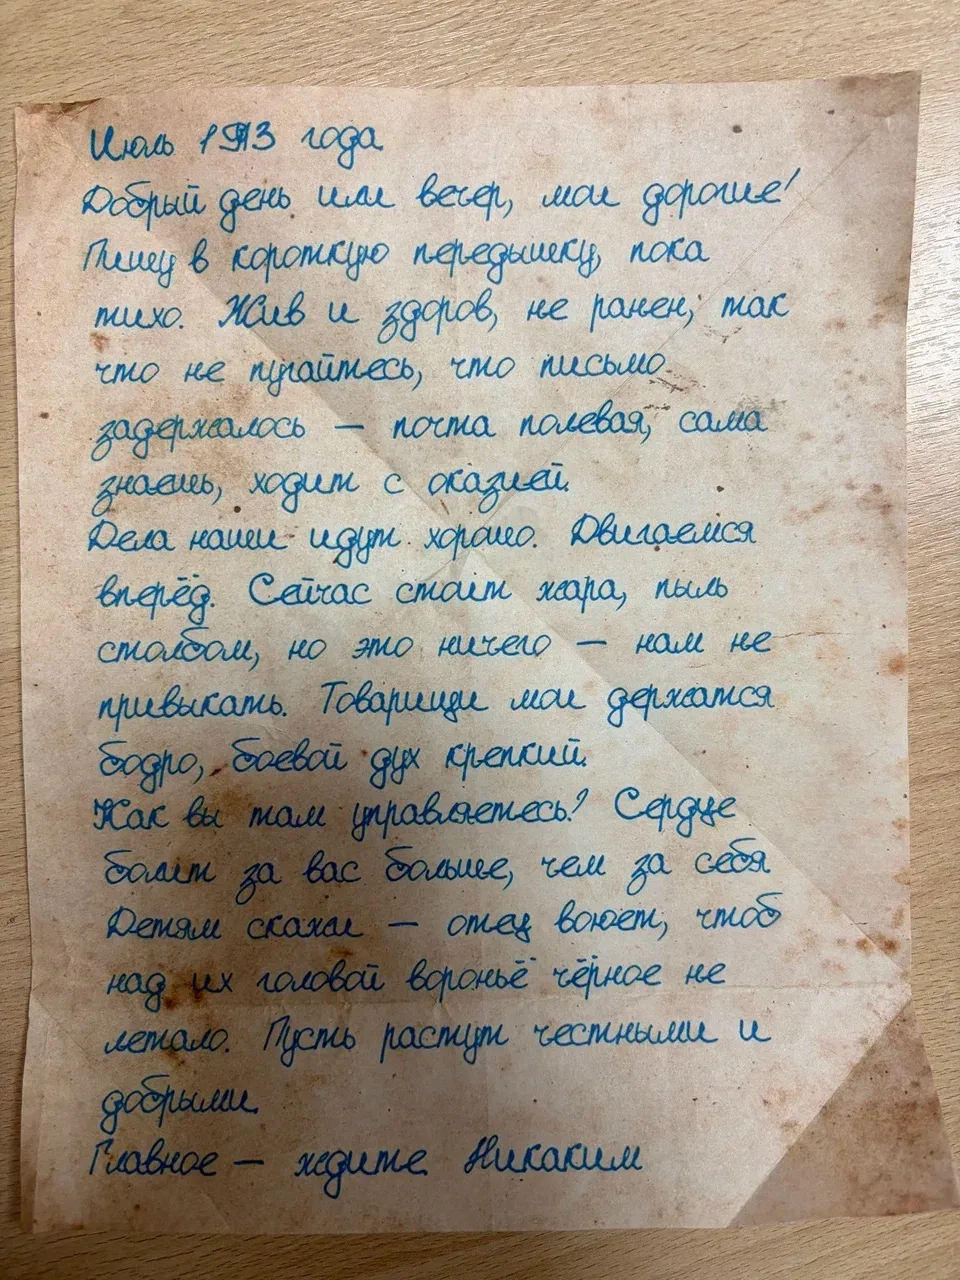 Июль 1943 года
Добрый день или вечер, мои дорогие!
Пишу в короткую передышку, пока
тихо. Жив и здоров, не ранен, так
что не пугайтесь, что письмо
задержалось — почта полевая, сама
знаешь, ходит с оказией.
Дела наши идут хорошо. Двигаемся
вперёд. Сейчас стоит жара, пыль
столбом, но это ничего — нам не
привыкать. Товарищи мои держатся
бодро, боевой дух крепкий.
Как вы там управляетесь? Сердце
болит за вас больше, чем за себя
Детям скажи — отец воюет, чтоб
над их головой вороньё чёрное не
летало. Пусть растут честными и
добрыми.
Главное — ждите. Никаким